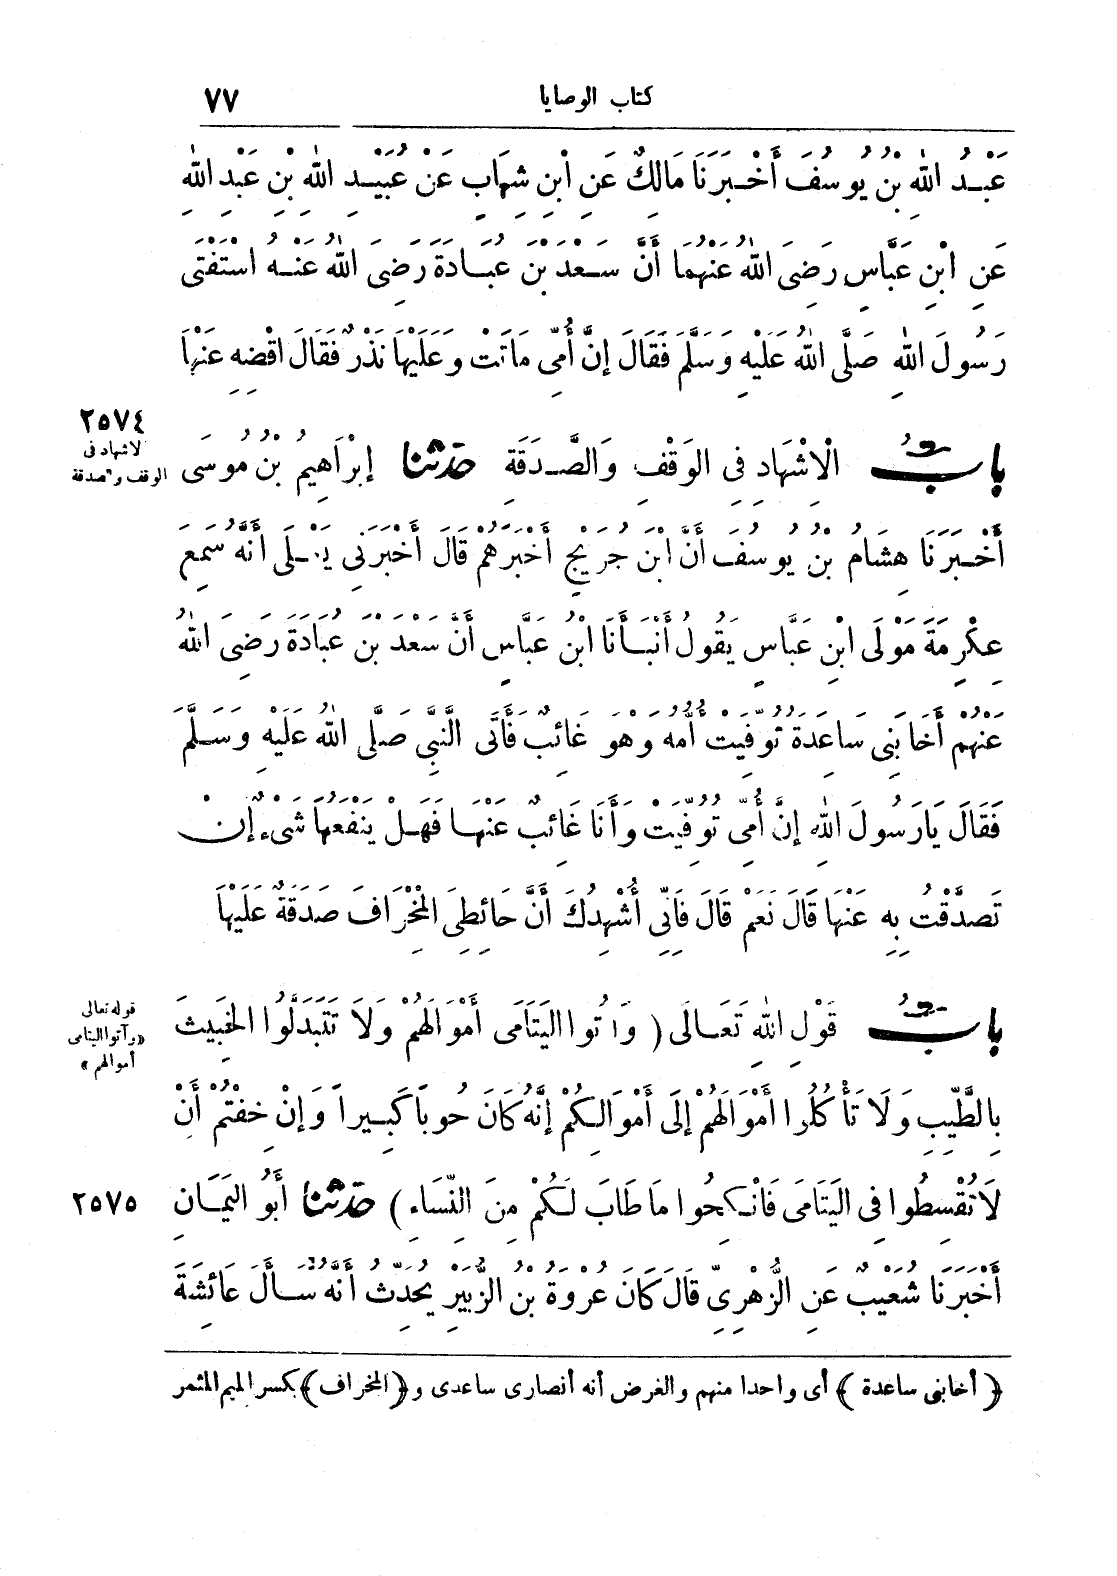 كتاب الوصايا ٧٧
عَبْدُ اللهِ بْنُ يُوسُفَ أَخْبَرَنَا مَالِكٌ عَنِ ابْنِ شِهَابٍ عَنْ عُبَيْدِ اللهِ بْنِ عَبْدِ اللهِ
عَنِ ابْنِ عَبَّاسٍ رَضِىَ اللهُ عَنْهُمَا أَنَّ سَعْدَ بْنَ عُبَادَةَ رَضِىَ اللهُ عَنْهُ اسْتَفْتَى
رَسُولَ اللهِ صَلَّى اللهُ عَلَيْهِ وَسَلَّمَ فَقَالَ إِنَّ أُمِّى مَاتَتْ وَعَلَيْهَا نَذْرٌ فَقَالَ اقْضِهِ عَنْهَا
٢٥٧٤
لاشهاد فى
الوقف والصدقة
بابُ الْإِشْهَادِ فِى الوَقْفِ وَالصَّدَقَةِ حَدَّثَنَا إِبْرَاهِيمُ بْنُ مُوسَى
أَخْبَرَنَا هِشَامُ بْنُ يُوسُفَ أَنَّ ابْنَ جُرَيْجٍ أَخْبَرَهُمْ قَالَ أَخْبَرَنِى يَعْلَى أَنَّهُ سَمِعَ
عِكْرِمَةَ مَوْلَى ابْنِ عَبَّاسٍ يَقُولُ أَنْبَأَنَا ابْنُ عَبَّاسٍ أَنَّ سَعْدَ بْنَ عُبَادَةَ رَضِىَ اللهُ
عَنْهُمْ أَخَا بَنِى سَاعِدَةَ تُوُفِّيَتْ أُمُّهُ وَهُوَ غَائِبٌ فَأَتَى النَّبِىَّ صَلَّى اللهُ عَلَيْهِ وَسَلَّمَ
فَقَالَ يَا رَسُولَ اللهِ إِنَّ أُمِّى تُوُفِّيَتْ وَأَنَا غَائِبٌ عَنْهَا فَهَلْ يَنْفَعُهَا شَىْءٌ إِنْ
تَصَدَّقْتُ بِهِ عَنْهَا قَالَ نَعَمْ قَالَ فَإِنِّى أُشْهِدُكَ أَنَّ حَائِطِىَ الْمِخْرَافَ صَدَقَةٌ عَلَيْهَا
قوله تعالى
«وآتوا اليتامى
أموالهم»
بابُ قَوْلِ اللهِ تَعَالَى ( وَآتُوا اليَتَامَى أَمْوَالَهُمْ وَلَا تَتَبَدَّلُوا الخَبِيثَ
بِالطَّيِّبِ وَلَا تَأْكُلُوا أَمْوَالَهُمْ إِلَى أَمْوَالِكُمْ إِنَّهُ كَانَ حُوبًا كَبِيرًا وَإِنْ خِفْتُمْ أَنْ
لَا تُقْسِطُوا فِى اليَتَامَى فَانْكِحُوا مَا طَابَ لَكُمْ مِنَ النِّسَاءِ ) حَدَّثَنَا أَبُو اليَمَانِ
٢٥٧٥
أَخْبَرَنَا شُعَيْبٌ عَنِ الزُّهْرِىِّ قَالَ كَانَ عُرْوَةُ بْنُ الزُّبَيْرِ يُحَدِّثُ أَنَّهُ سَأَلَ عَائِشَةَ
﴿أخا بنى ساعدة﴾ أى واحدا منهم والغرض أنه أنصارى ساعدى و﴿المخراف﴾ بكسر الميم المثمر